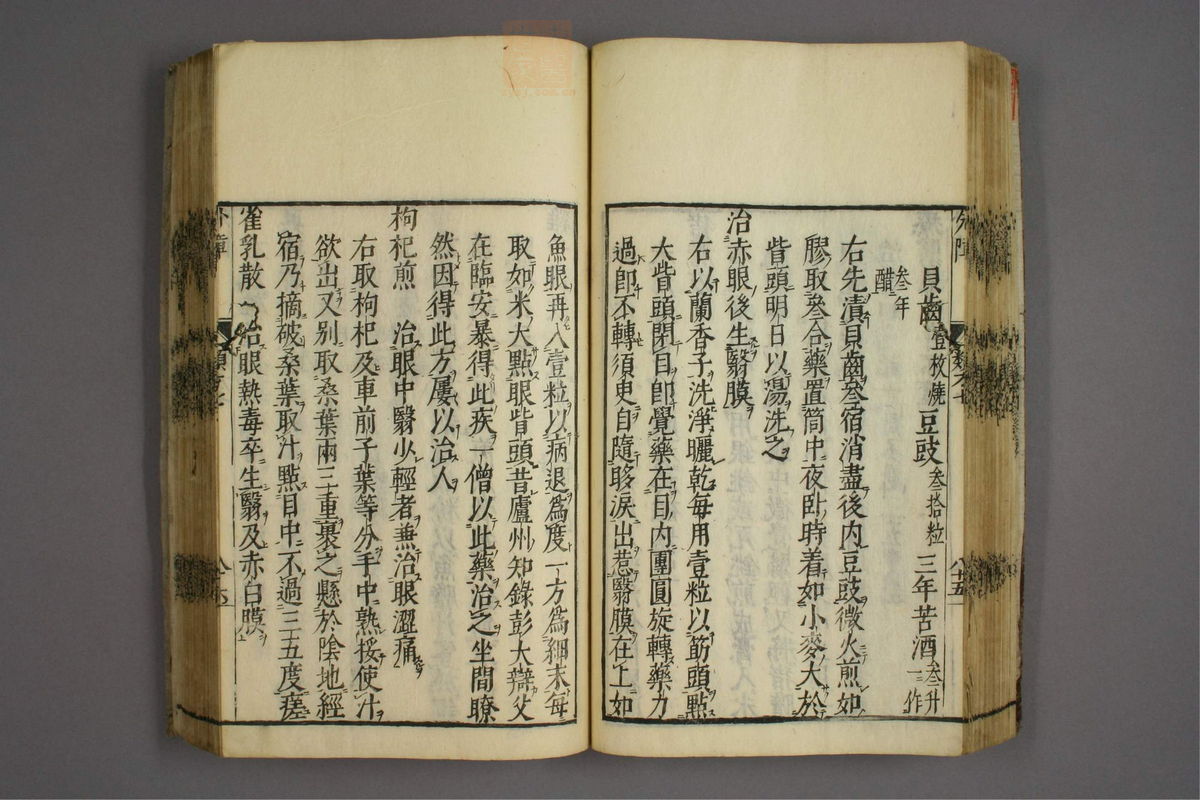 外障
貝齒壹枚燒 豆豉叁拾粒 三年苦酒叁升一作
叁年醋
右先漬貝齒叁宿消盡後内豆豉微火煎如
膠取叁合藥置筒中夜卧時着如小麥大於
眥頭明日以湯洗之
治赤眼後生翳膜
右以蘭香子洗淨曬乾每用壹粒以筯頭點
大眥頭閉目卽覺藥在目内團圓旋轉藥力
過卽不轉須臾自隨眵淚出惹翳膜在上如
魚眼再入壹粒以病退爲度一方爲細末每
取如米大點眼眥頭昔廬州知錄彭大辯
在臨安暴得此疾一僧以此藥治之坐間瞭
然因得此方屢以治人
枸杞煎 治眼中翳少輕者兼治眼澀痛
右取枸杞及車前子葉等分手中熟挼使汁
欲出又别取桑葉兩三重裹之懸於陰地經
宿乃摘破桑葉取汁點目中不過三五度瘥
雀乳散 治眼熱毒卒生翳及赤白膜
外障